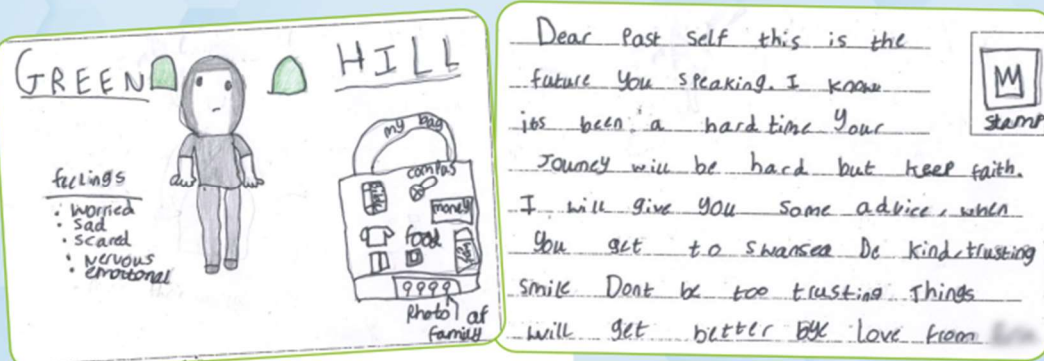 GREEN HILL
feelings
• worried
• sad
• scared
• nervous
• emotional
my bag
compas
money
food
Photo of
family
Dear Past self this is the
future you speaking. I know
its been a hard time your
Journey will be hard but keep faith.
I will give you some advice, when
you get to swansea be kind, trusting
smile Dont be too trusting Things
will get better bye love from
stamp